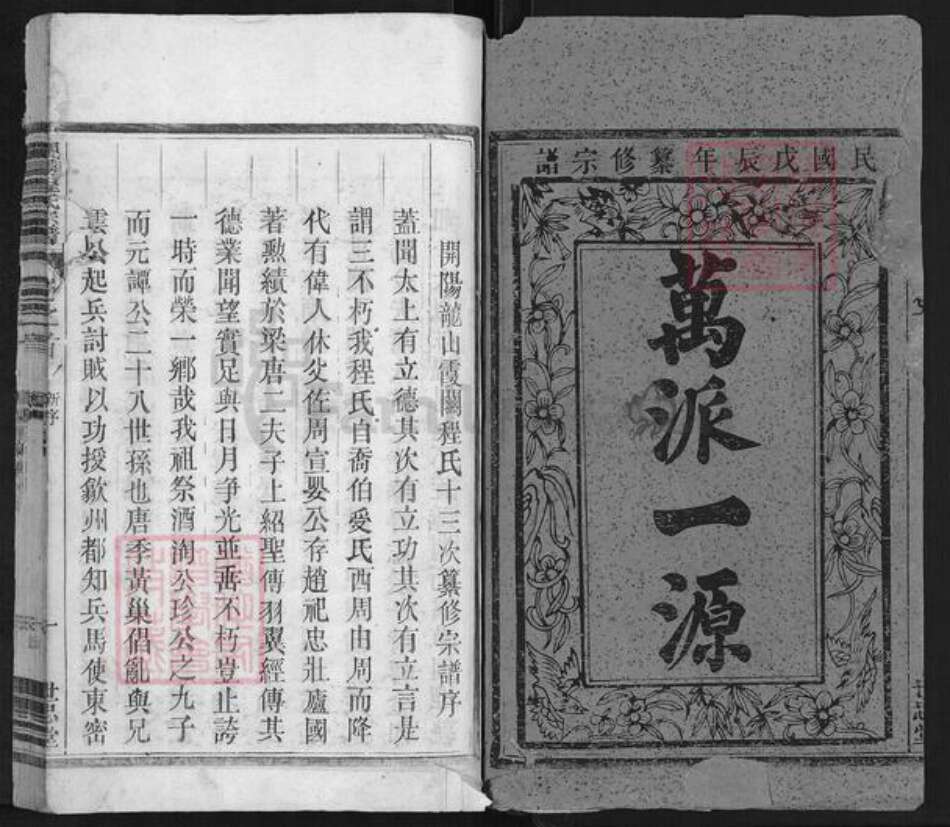 民國戊辰年纂修宗譜
萬派一源
世忠堂
開陽龍山霞關程氏十三次纂修宗譜序
蓋聞太上有立德其次有立功其次有立言是
謂三不朽我程氏自喬伯受氏西周由周而降
代有偉人休父佐周宣嬰公存趙祀忠壯廬國
著勲績於梁唐二夫子上紹聖傳羽翼經傳其
德業聞望實足與日月争光並垂不朽豈止誇
一時而榮一鄉哉我祖祭酒淘公珍公之九子
而元譚公二十八世孫也唐季黃巢倡亂與兄
澐公起兵討賊以功授歙州都知兵馬使東密
程氏宗譜
卷之首
新序
一
世忠堂